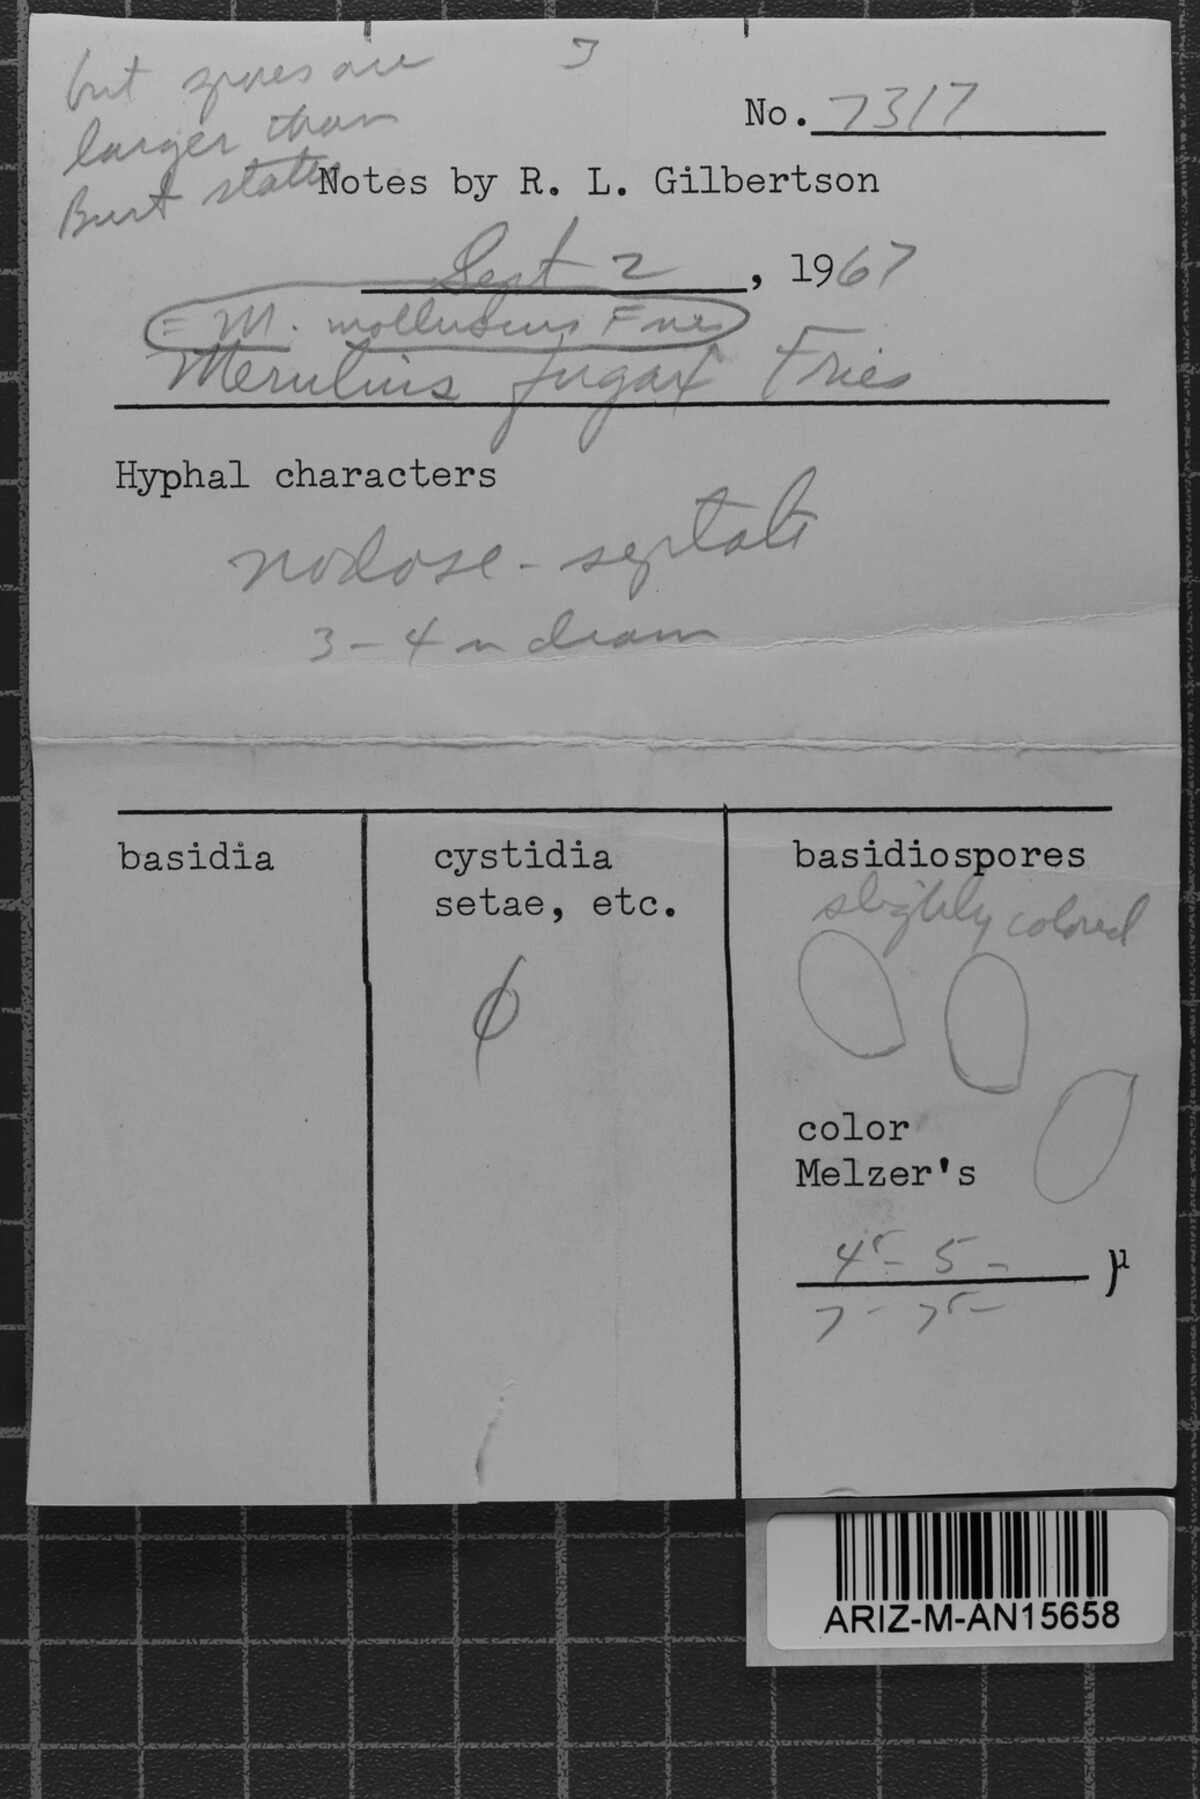 but spores are
larger than
Burt states
No. 7317
Notes by R. L. Gilbertson
Sept 2, 1967
= M. molluscus Fries
Merulius fugax Fries
Hyphal characters
nodose-septate
3-4 μ diam
basidia
cystidia
setae, etc.
ϕ
basidiospores
slightly colored
color
Melzer's
4⁵- 5- μ
7- 7⁵-
ARIZ-M-AN15658